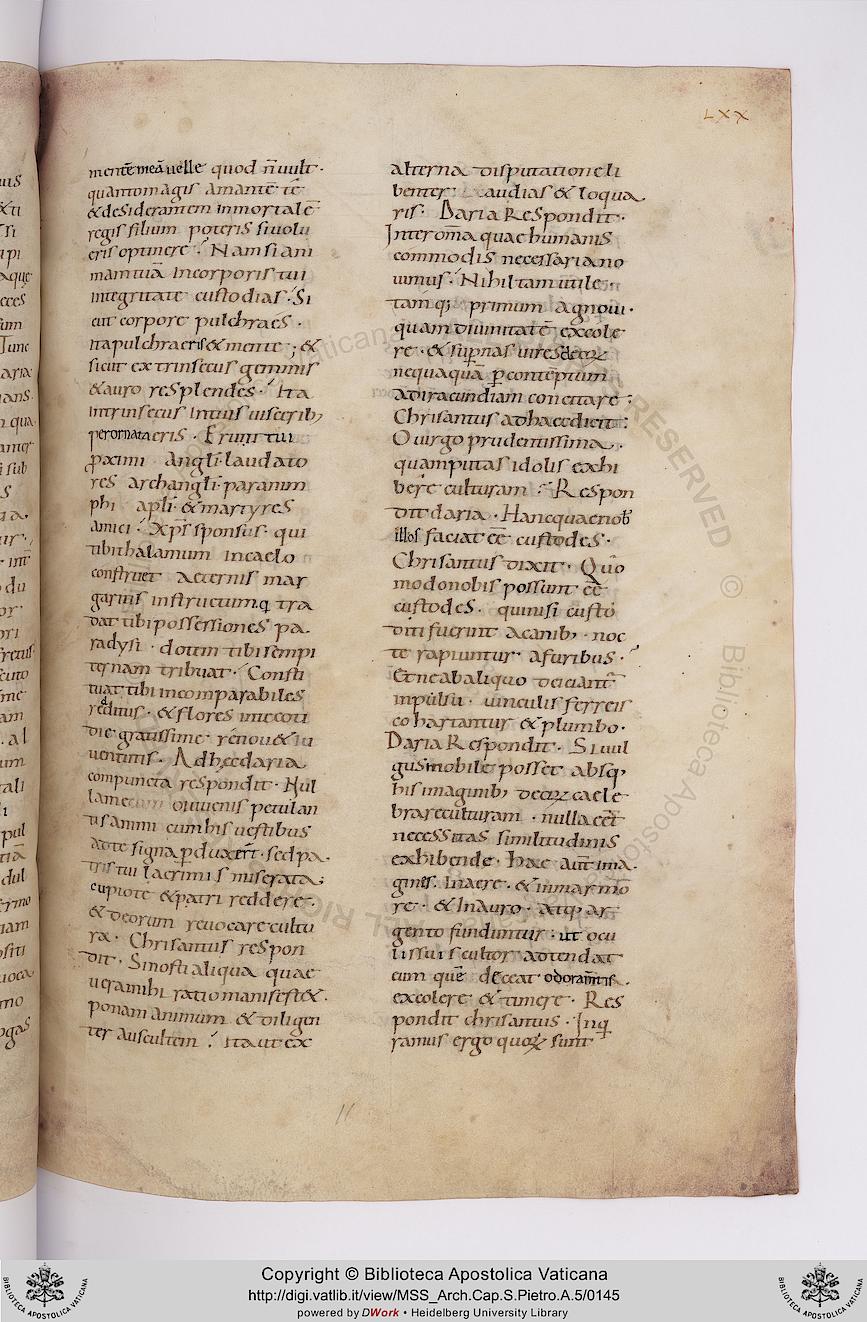 LXX
mentē meā uelle quod n̄ uult·
quantomagis amantē tē
& desiderantem inmortalē
regis filium poteris si uolu
eris optinere? Nam si ani
mam tuā incorporis tui
integritate custodias· Si
cut corpore pulchra es·
ita pulchra eris & mente; &
sicut extrinsecus gemmis
& auro resplendes· Ita
intrinsecus intuis uiscerib;
perornata eris· Erunt tui
ꝓximi angli· laudato
res archangli· paranim
phi apłi· & martyres
amici· Xpr̄ sponsus· qui
tibi thalamum in caelo
construet aeternis mar
garitis instructumq; tra
dat tibi possessiones pa
radysi· dotem tibi sempi
ternam tribuat· Consti
tuat tibi incomparabiles
reditus· & flores in te coti
die gratissime renou& iu
uentutis· Adhęc daria
compuncta respondit· Nul
lam o iuuenis petulan
tis animi cum his uestibus
ad te signa ꝑduxer̄t· sed pa
tris tui lacrimis miserata;
cupio te & patri reddere·
& deorum reuocare cultu
ra· Chrisantus respon
dit· Si nosti aliqua quae
uera mihi ratio manifest&·
ponam animum & diligen
ter auscultem? ita ut ex
alterna disputatione li
benter: audias & loqua
ris· Daria Respondit·
Inter om̄a quae humanis
commodis necessaria no
uimus· Nihil tam utile·
tamq; primum agnoui·
quam diuinitatē excole
re· & supnas uires deoꝝ
nequaquā ꝑ contēptum
ad iracundiam concitare;
Chrisantus ad haec dicit:
O uirgo prudentissima·
quam putas idolis exhi
bere culturam? Respon
dit daria· Hanc quae nob̄
illos faciat eē custodes·
Chrisantus dixit· Quo
modo nobis possunt eē
custodes· qui nisi custo
diti fuerint a canib; noc
te rapiuntur a furibus·
Et ne ab aliquo deiciant̄
inpulsu· uinculis ferreis
cohartantur & plumbo·
Daria Respondit· Si uul
gus mobile posset absq;
his imaginib; deoꝝ caele
brare culturam· nulla eēt
necessitas similitudinis
exhibende· hae aut̄ ima
gines in aere· & in marmo
re· & in auro· atq; ar
gento funduntur· ut ocu
lis suis cultor adtendat
cum quē deceat
excolere & timere· Res
pondit chrisantus· Inq̄
ramus ergo quoꝝ sunt
Copyright © Biblioteca Apostolica Vaticana
http://digi.vatlib.it/view/MSS_Arch.Cap.S.Pietro.A.5/0145
powered by DWork • Heidelberg University Library